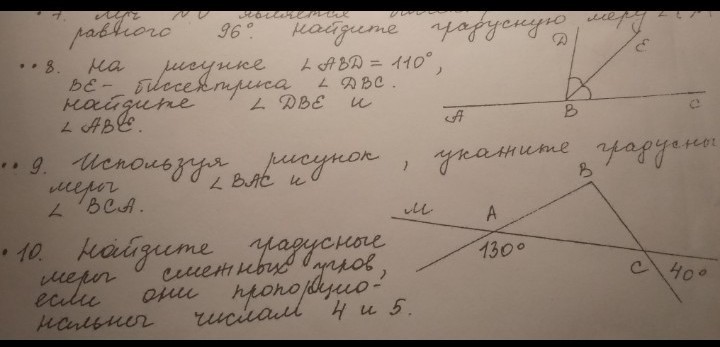 равного 96°. Найдите градусную меру
8. На рисунке ∠ABD = 110°,
BE - биссектриса ∠DBC.
Найдите ∠DBE и
∠ABE.
D
E
A
B
C
9. Используя рисунок, укажите градусны
меры ∠BAC и
∠BCA.
B
M
A
130°
C
40°
10. Найдите градусные
меры смежных углов,
если они пропорцио-
нальны числам 4 и 5.